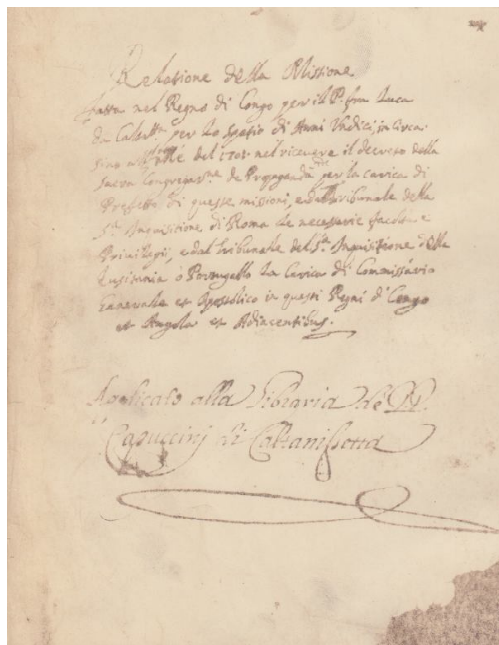 Relatione della Missione
fatta nel Regno di Congo per il P. fra Luca
da Caltan.ta per lo spatio di Anni Undici, in circa
sino al del 1701. nel ricevere il decreto della
Sacra Congregat.ne de Propaganda per la carica di
Prefetto di queste missioni, e dal tribunale della
S.ta Inquisitione di Roma le necessarie facoltà e
Privilegii, e dal tribunale del S.ta Inquisitione
Lusitania ò Portugallo la Carica di Commissario
Generale et Apostolico in questi Regni di Congo
et Angola et Adiacentibus.
Applicato alla Libraria de PP.
Capuccinj di Caltanissetta